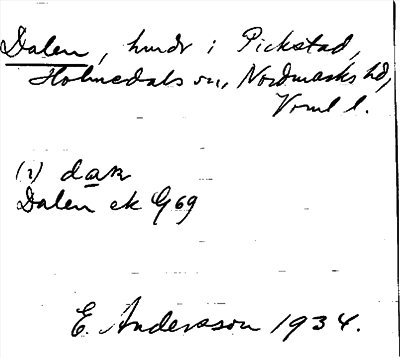 Dalen, hmdr i Pickstad,
Holmedals sn, Nordmarks hd,
Vrml l.
(i) daɲ
Dalen ek G 69
E. Andersson 1934.